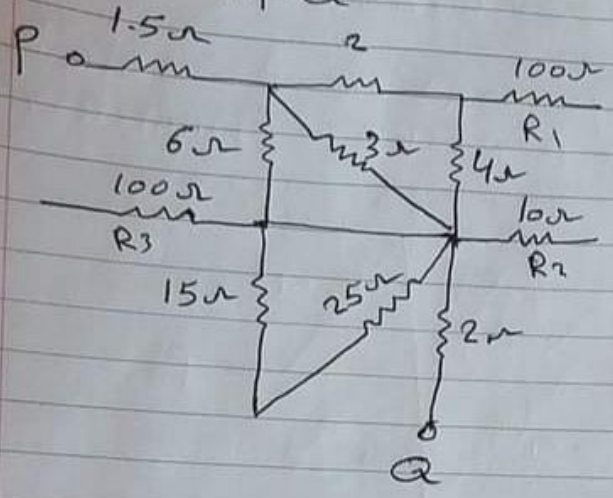 1.5Ω
P
2
100Ω
R1
6Ω
3Ω
4Ω
100Ω
R3
10Ω
R2
15Ω
25Ω
2Ω
Q